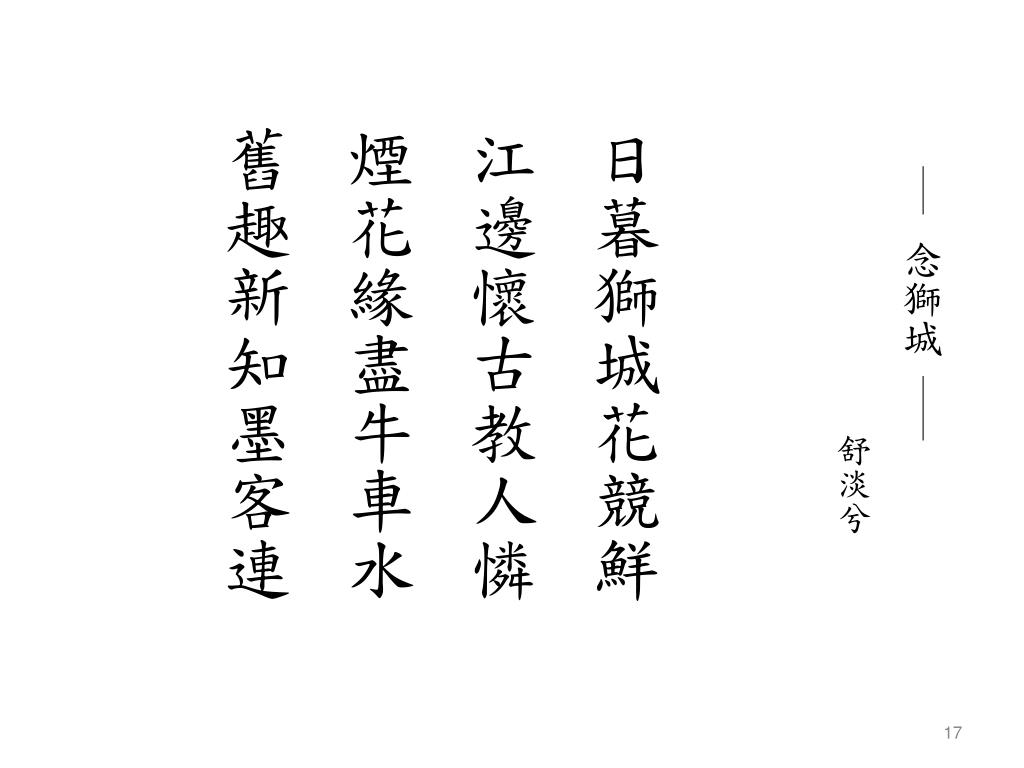 — 念獅城 —
舒淡兮
日暮獅城花競鮮
江邊懷古教人憐
煙花緣盡牛車水
舊趣新知墨客連
17